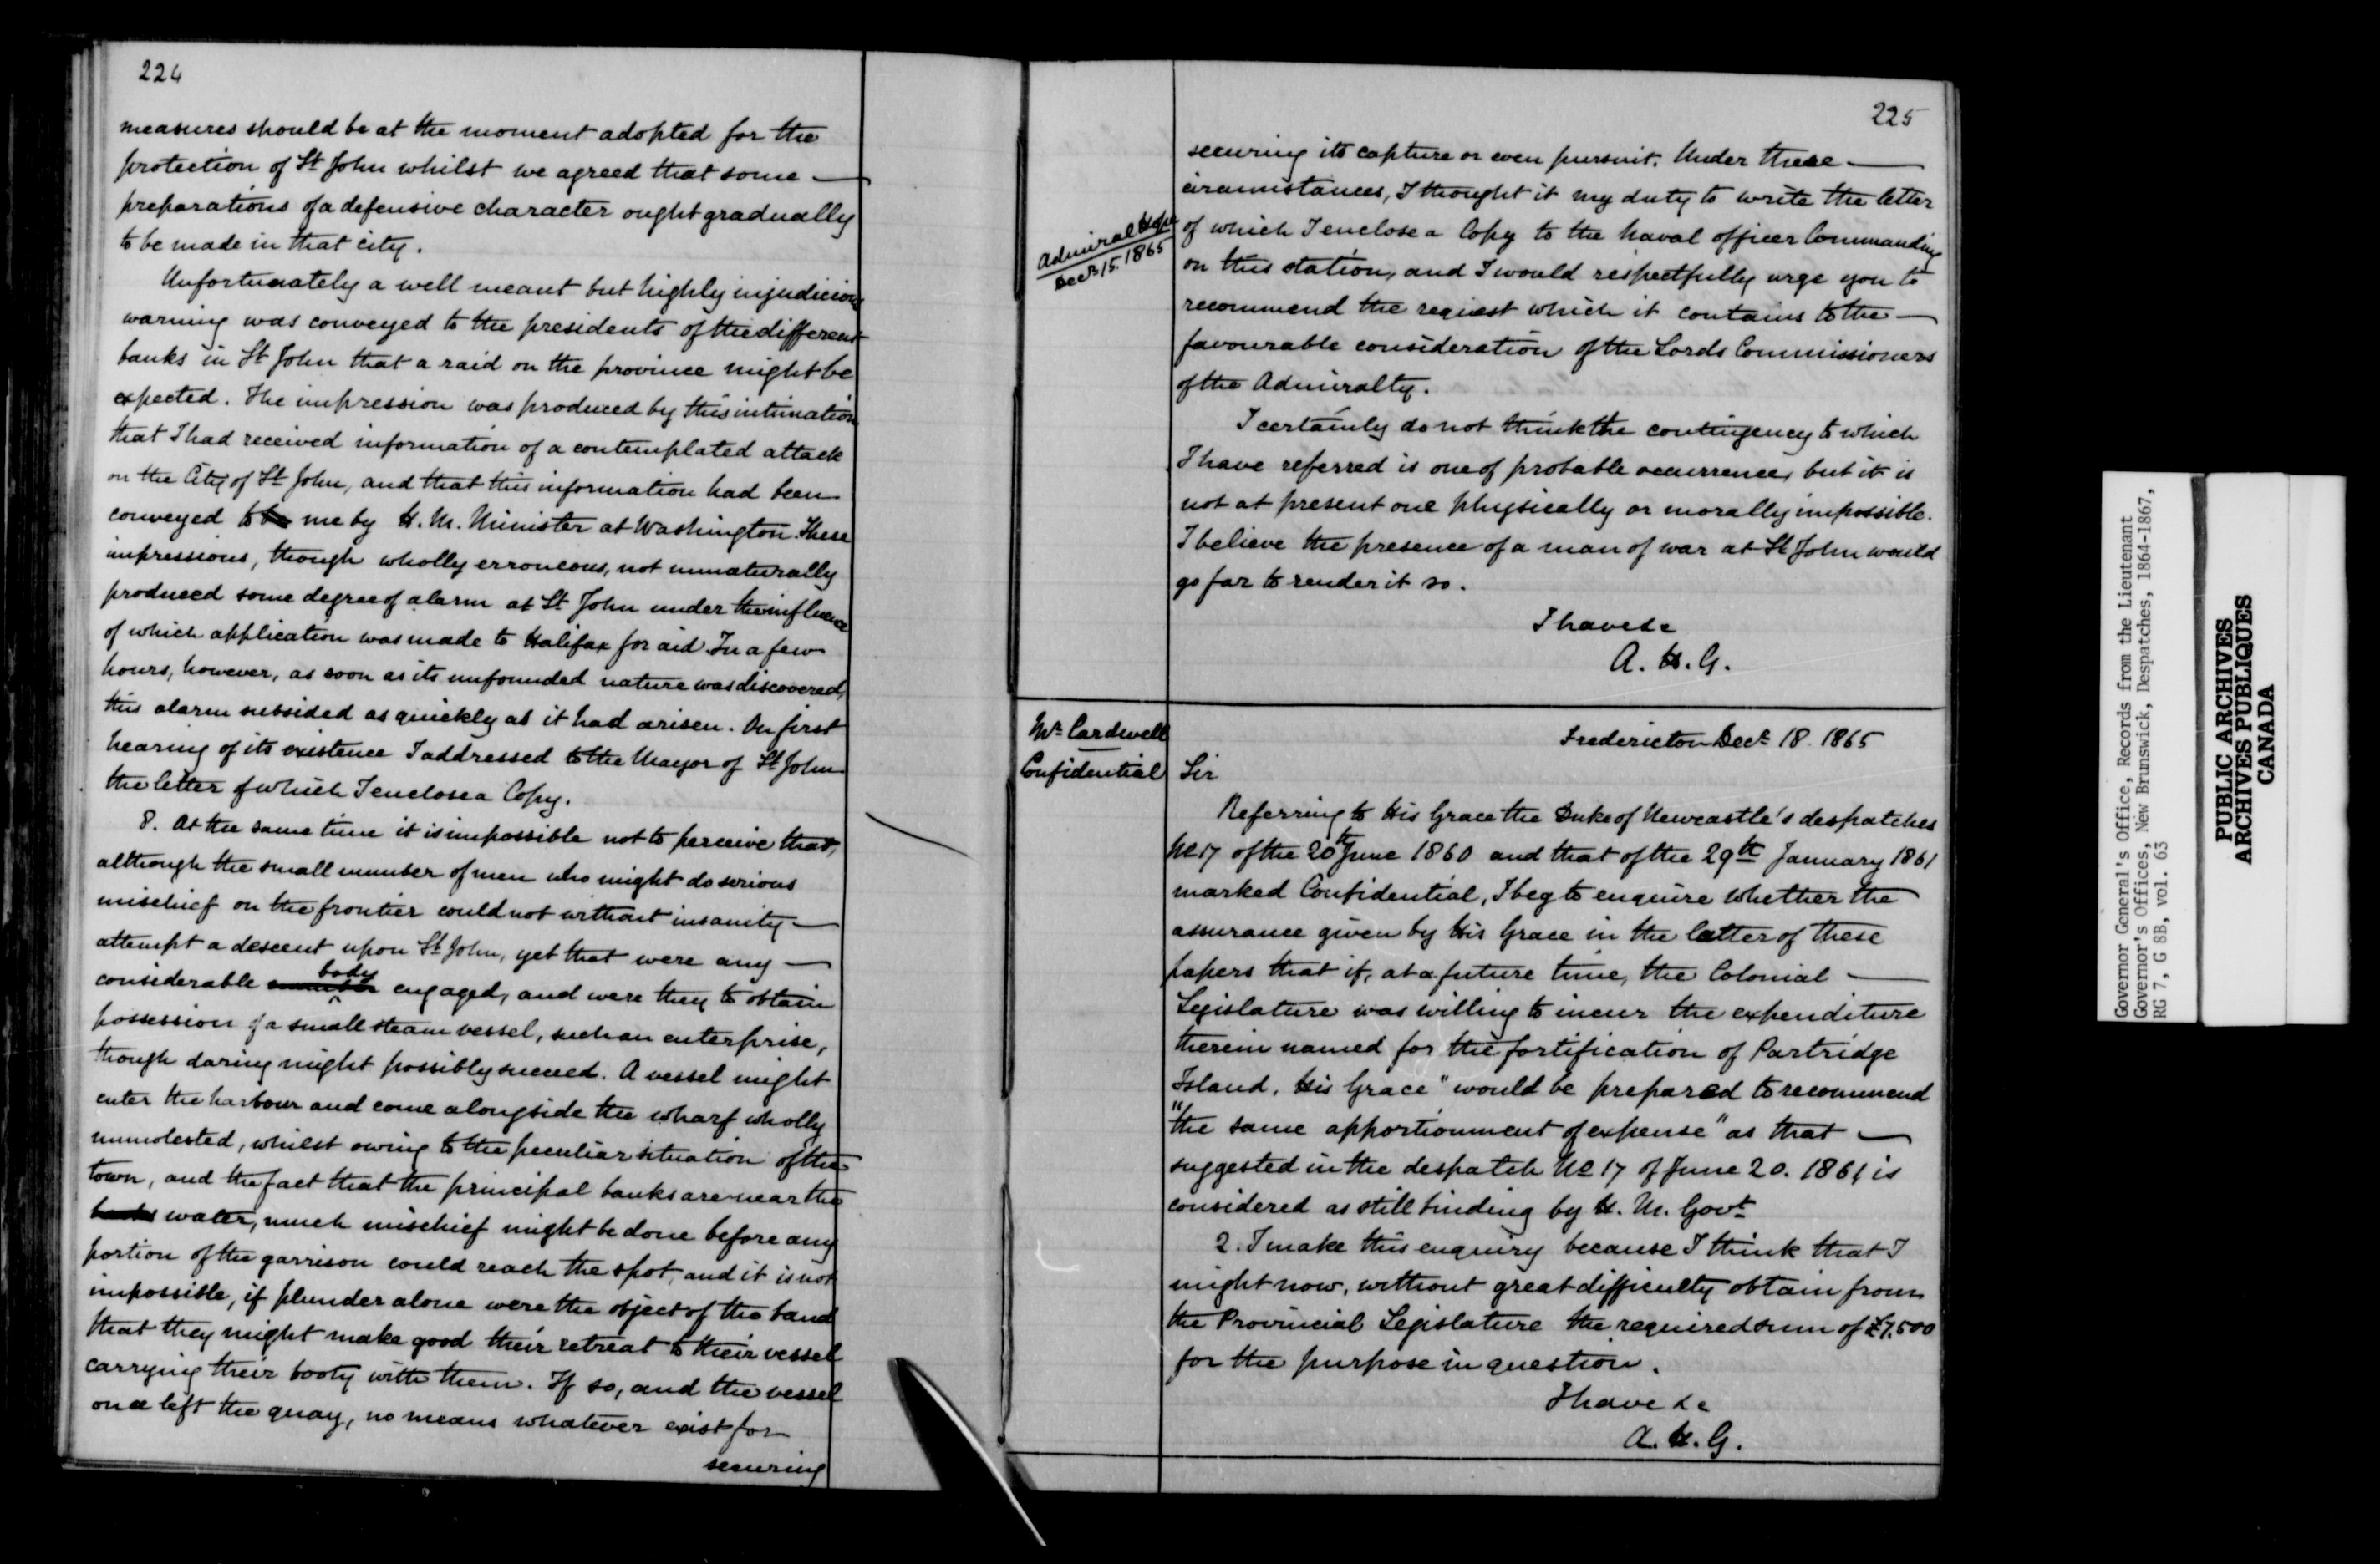 224
measures should be at the moment adopted for the
protection of St John whilst we agreed that some —
preparations of a defensive character ought gradually
to be made in that city.
Unfortunately a well meant but highly injudicious
warning was conveyed to the presidents of the different
banks in St John that a raid on the province might be
expected. The impression was produced by this intimation
that I had received information of a contemplated attack
on the City of St John, and that this information had been
conveyed to be me by H. M. Minister at Washington. These
impressions, though wholly erroneous, not unnaturally
produced some degree of alarm at St John under the influence
of which application was made to Halifax for aid. In a few
hours, however, as soon as its unfounded nature was discovered,
this alarm subsided as quickly as it had arisen. On first
hearing of its existence I addressed to the Mayor of St John
the letter of which I enclose a Copy.
8. At the same time it is impossible not to perceive that,
although the small number of men who might do serious
mischief on the frontier could not without insanity —
attempt a descent upon St John, yet that were any —
considerable number body engaged, and were they to obtain
possession of a small steam vessel, such an enterprise,
though daring might possibly succeed. A vessel might
enter the harbour and come alongside the wharf wholly
unmolested, whilst owing to the peculiar situation of the
town, and the fact that the principal banks are near the
banks water, much mischief might be done before any
portion of the garrison could reach the spot, and it is not
impossible, if plunder alone were the object of the band
that they might make good their retreat to their vessel
carrying their booty with them. If so, and the vessel
once left the quay, no means whatever exist for
securing
225
securing its capture or even pursuit. Under these —
circumstances, I thought it my duty to write the letter
Admiral Hope
Decr 15. 1865
of which I enclose a Copy to the Naval officer Commanding
on this station, and I would respectfully urge you to
recommend the request which it contains to the —
favourable consideration of the Lords Commissioners
of the Admiralty.
I certainly do not think the contingency to which
I have referred is one of probable occurrence, but it is
not at present one physically or morally impossible.
I believe the presence of a man of war at St John would
go far to render it so.
I have &c
A. H. G.
Mr Cardwell
Confidential
Fredericton Decr 18. 1865
Sir
Referring to His Grace the Duke of Newcastle's despatches
No 17 of the 20th June 1860 and that of the 29th January 1861
marked Confidential, I beg to enquire whether the
assurance given by His Grace in the latter of these
papers that if, at a future time, the Colonial —
Legislature was willing to incur the expenditure
therein named for the fortification of Partridge
Island, His Grace "would be prepared to recommend
"the same apportionment of expense" as that —
suggested in the despatch No 17 of June 20. 1861 is
considered as still binding by H. M. Govt
2. I make this enquiry because I think that I
might now, without great difficulty obtain from
the Provincial Legislature the required sum of £7.500
for the purpose in question.
I have &c
A. H. G.
Governor General's Office, Records from the Lieutenant
Governor's Offices, New Brunswick, Despatches, 1864-1867,
RG 7, G 8B, vol. 63
PUBLIC ARCHIVES
ARCHIVES PUBLIQUES
CANADA